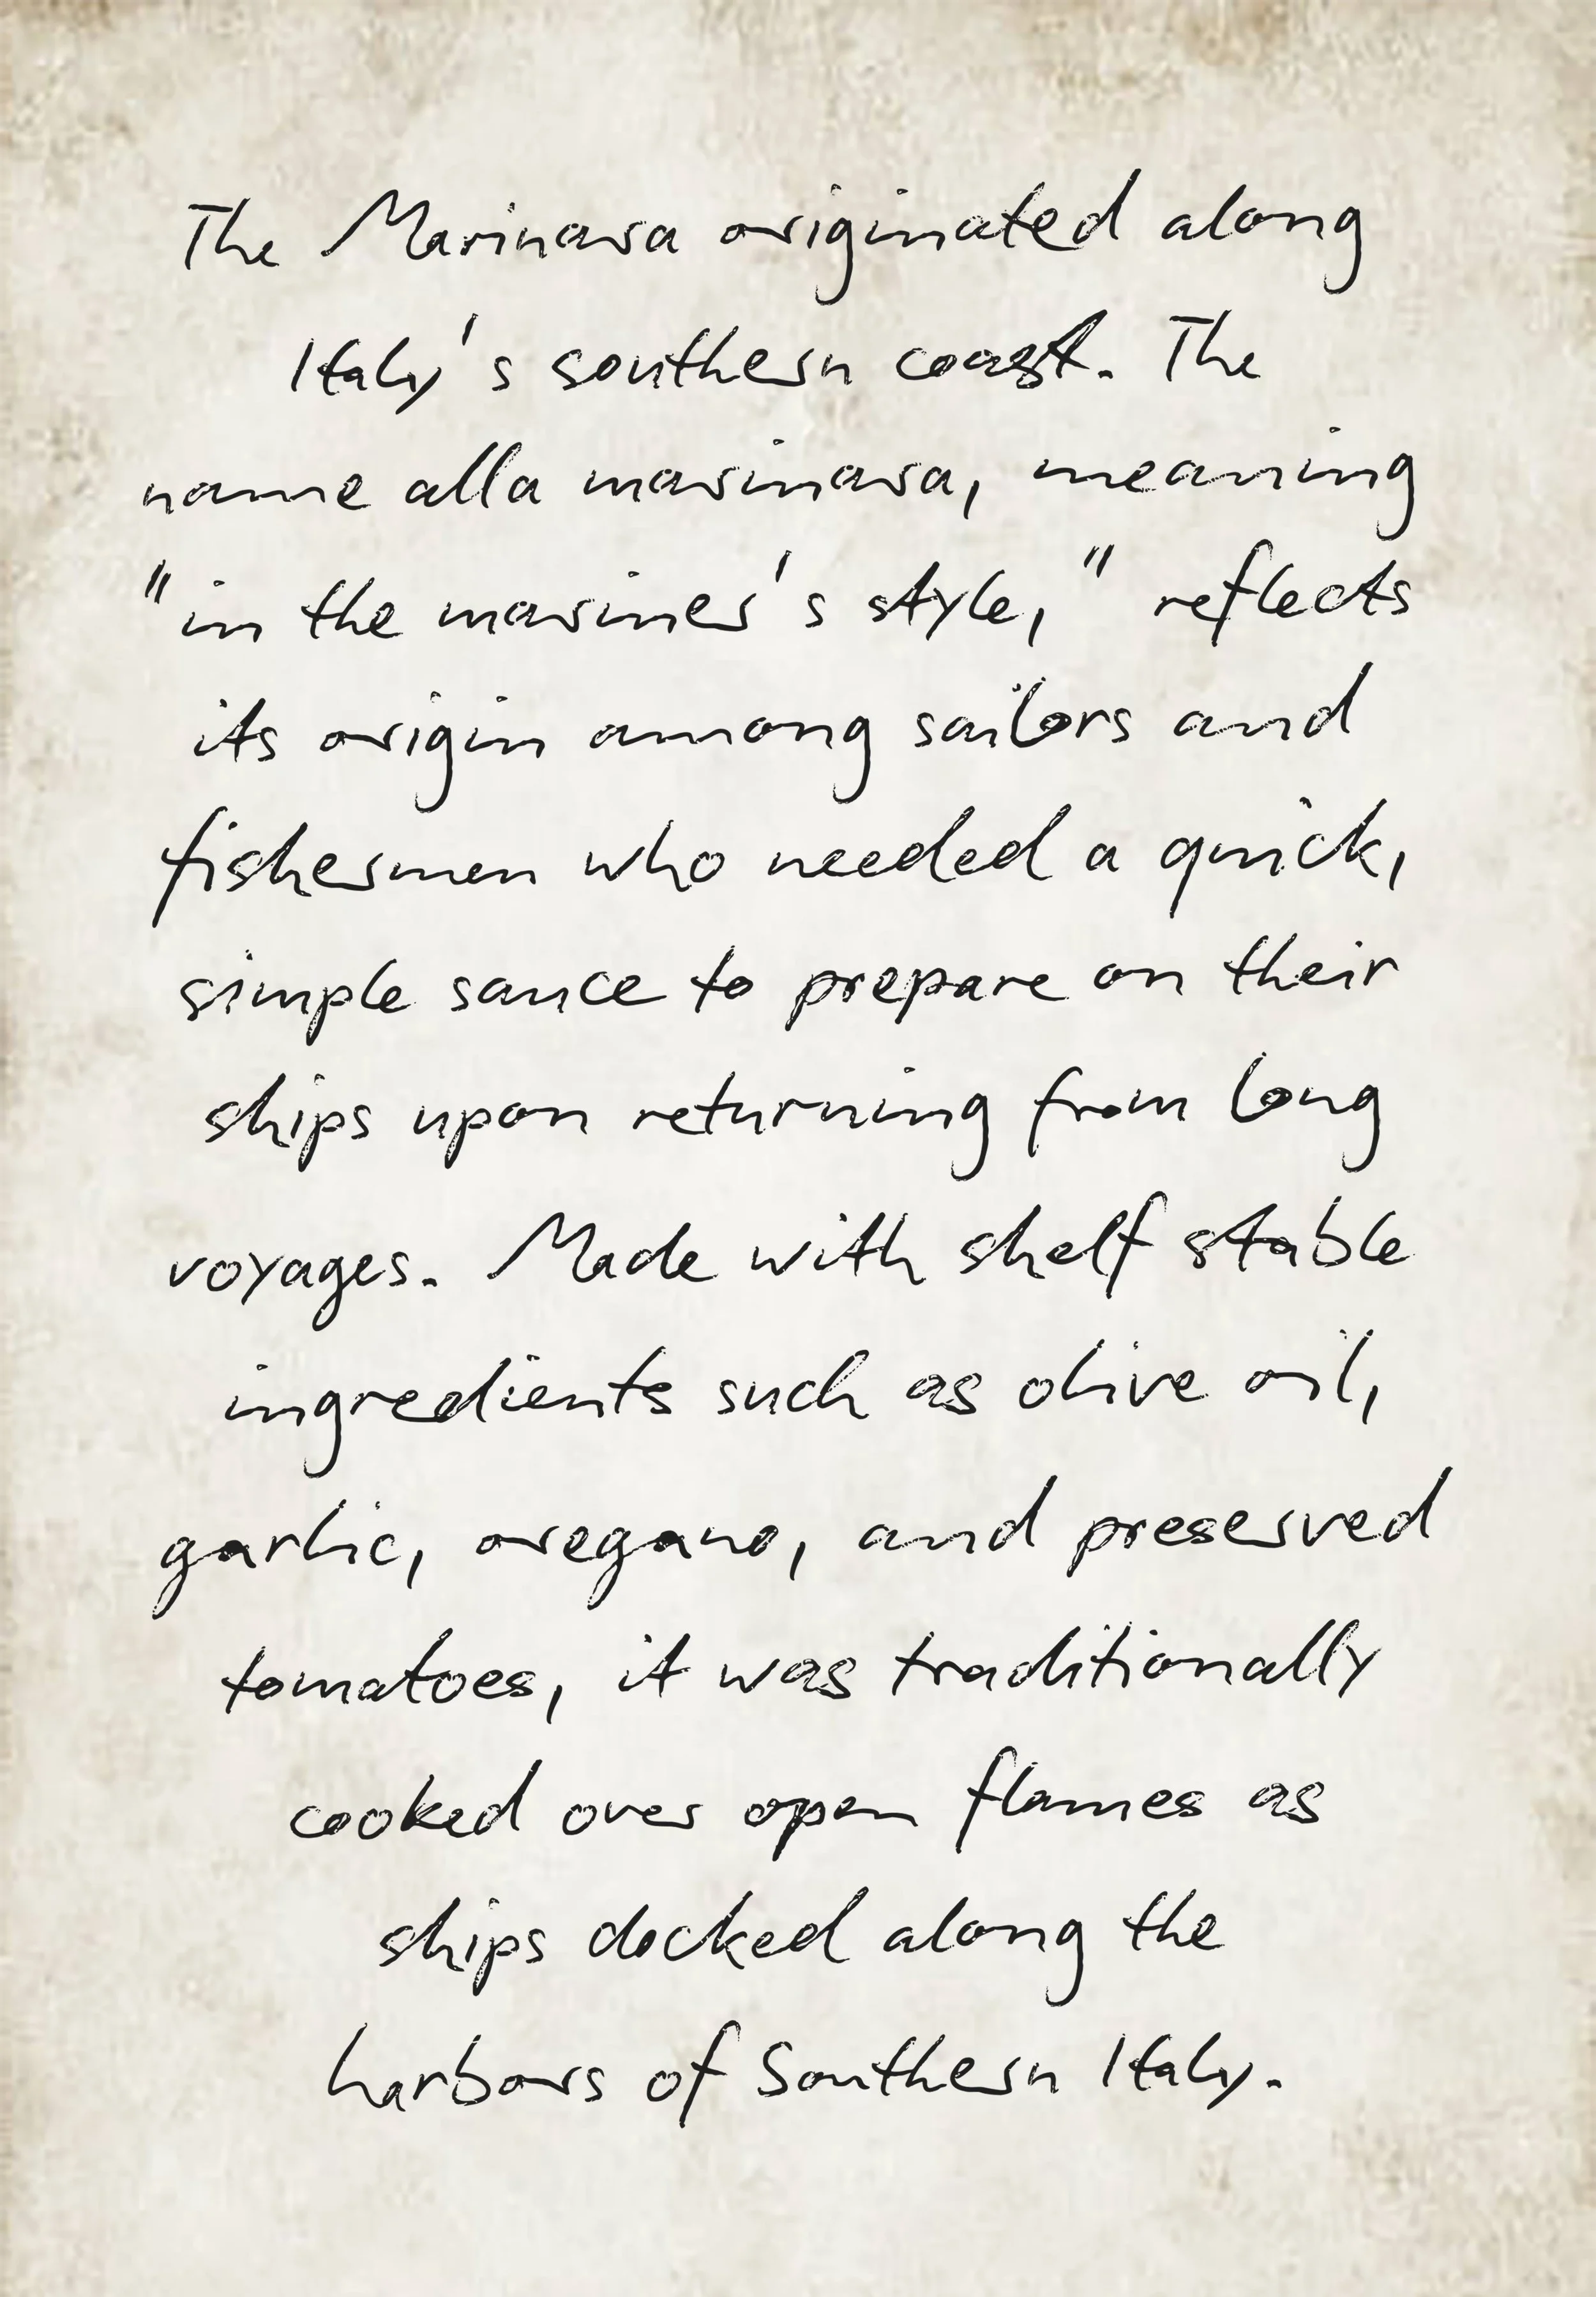 The Marinara originated along
Italy's southern coast. The
name alla marinara, meaning
"in the mariner's style," reflects
its origin among sailors and
fishermen who needed a quick,
simple sauce to prepare on their
ships upon returning from long
voyages. Made with shelf stable
ingredients such as olive oil,
garlic, oregano, and preserved
tomatoes, it was traditionally
cooked over open flames as
ships docked along the
harbors of Southern Italy.